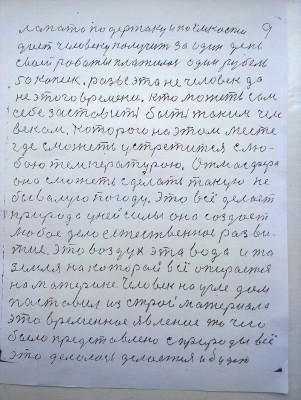 ламато по держаку и по ёмкости я
дает человеку получит за один день
своей работы платили один рубель
50 копеек. разве эта не человек да
не этого времени. кто может сам
себе заставити быти таким чем
веком. Которого на этом месте
где сможеть устретится с лю-
бою температурою. Отмасфера
она сможеть сделать такую не
бывалую погоду. Это всё делает
природа у ней силы она создает
любое дело естественное разви-
тие. Это воздух эта вода и та
земля на которой всё опирается
на материке Человек на угле дом
поставил из строй материала
это временное явление то чего
было представлено с природы всё
это делалось делается и будет